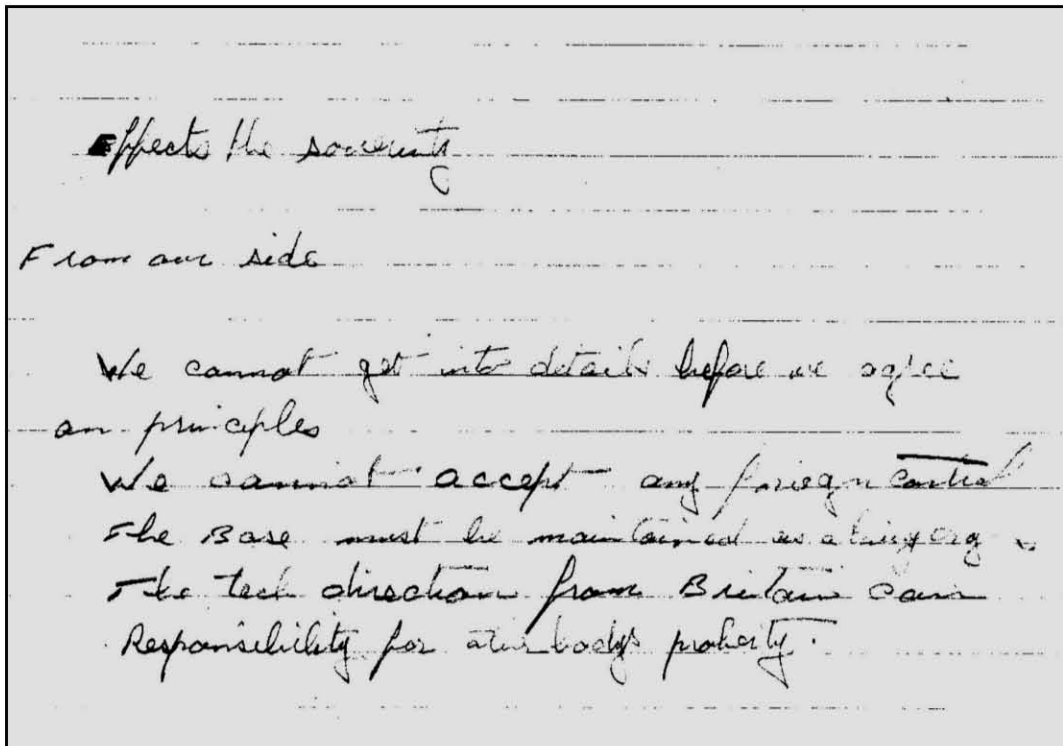 Effects the soverenty
From our side
We cannot get into details before we agree
on principles
We cannot accept any foriegn control
The Base must be maintained as a
The tech direction from Britain can
Responsibility for body's proberty.